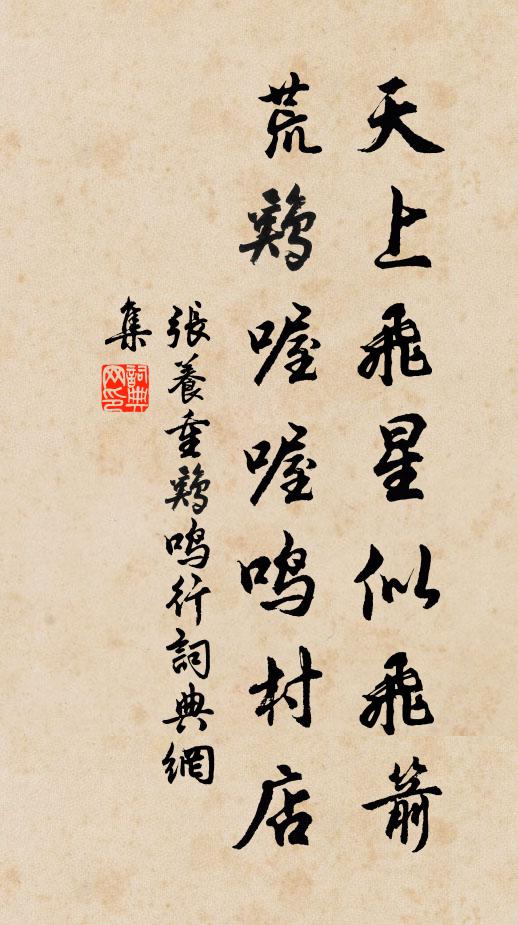 天上飛星似飛箭
荒鷄喔喔鳴村店
張養重鷄鳴行詞典網
集
詞典网印